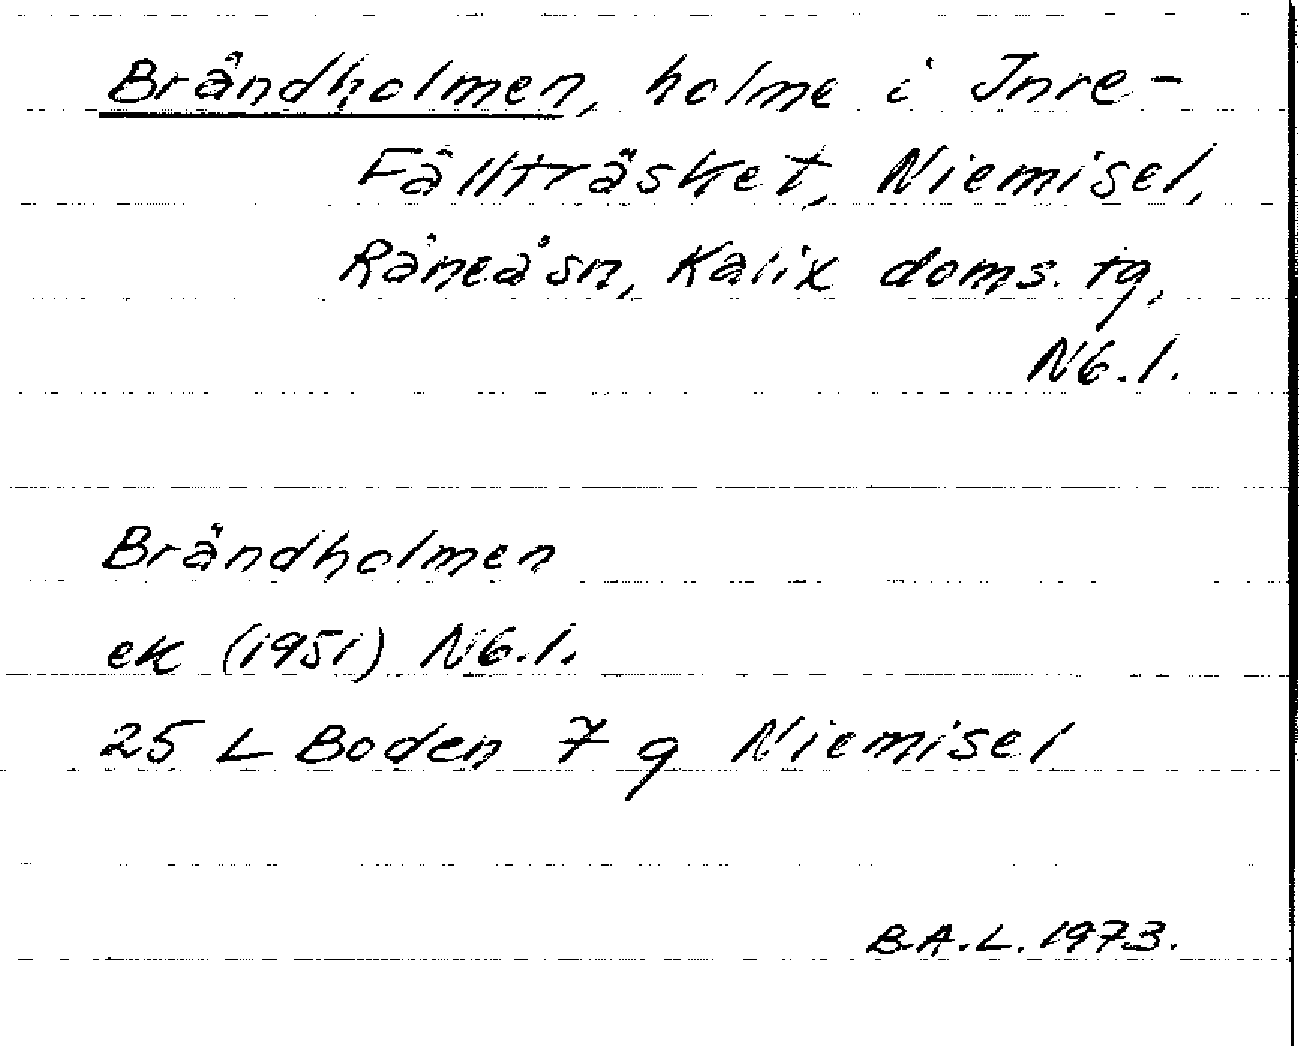 Brändholmen, holme i Inre-
Fällträsket, Niemisel,
Råneå sn, Kalix doms. tg,
Nb.l.
Brändholmen
ek (1951) Nb.l.
25 L Boden 7 g Niemisel
B.A.L. 1973.